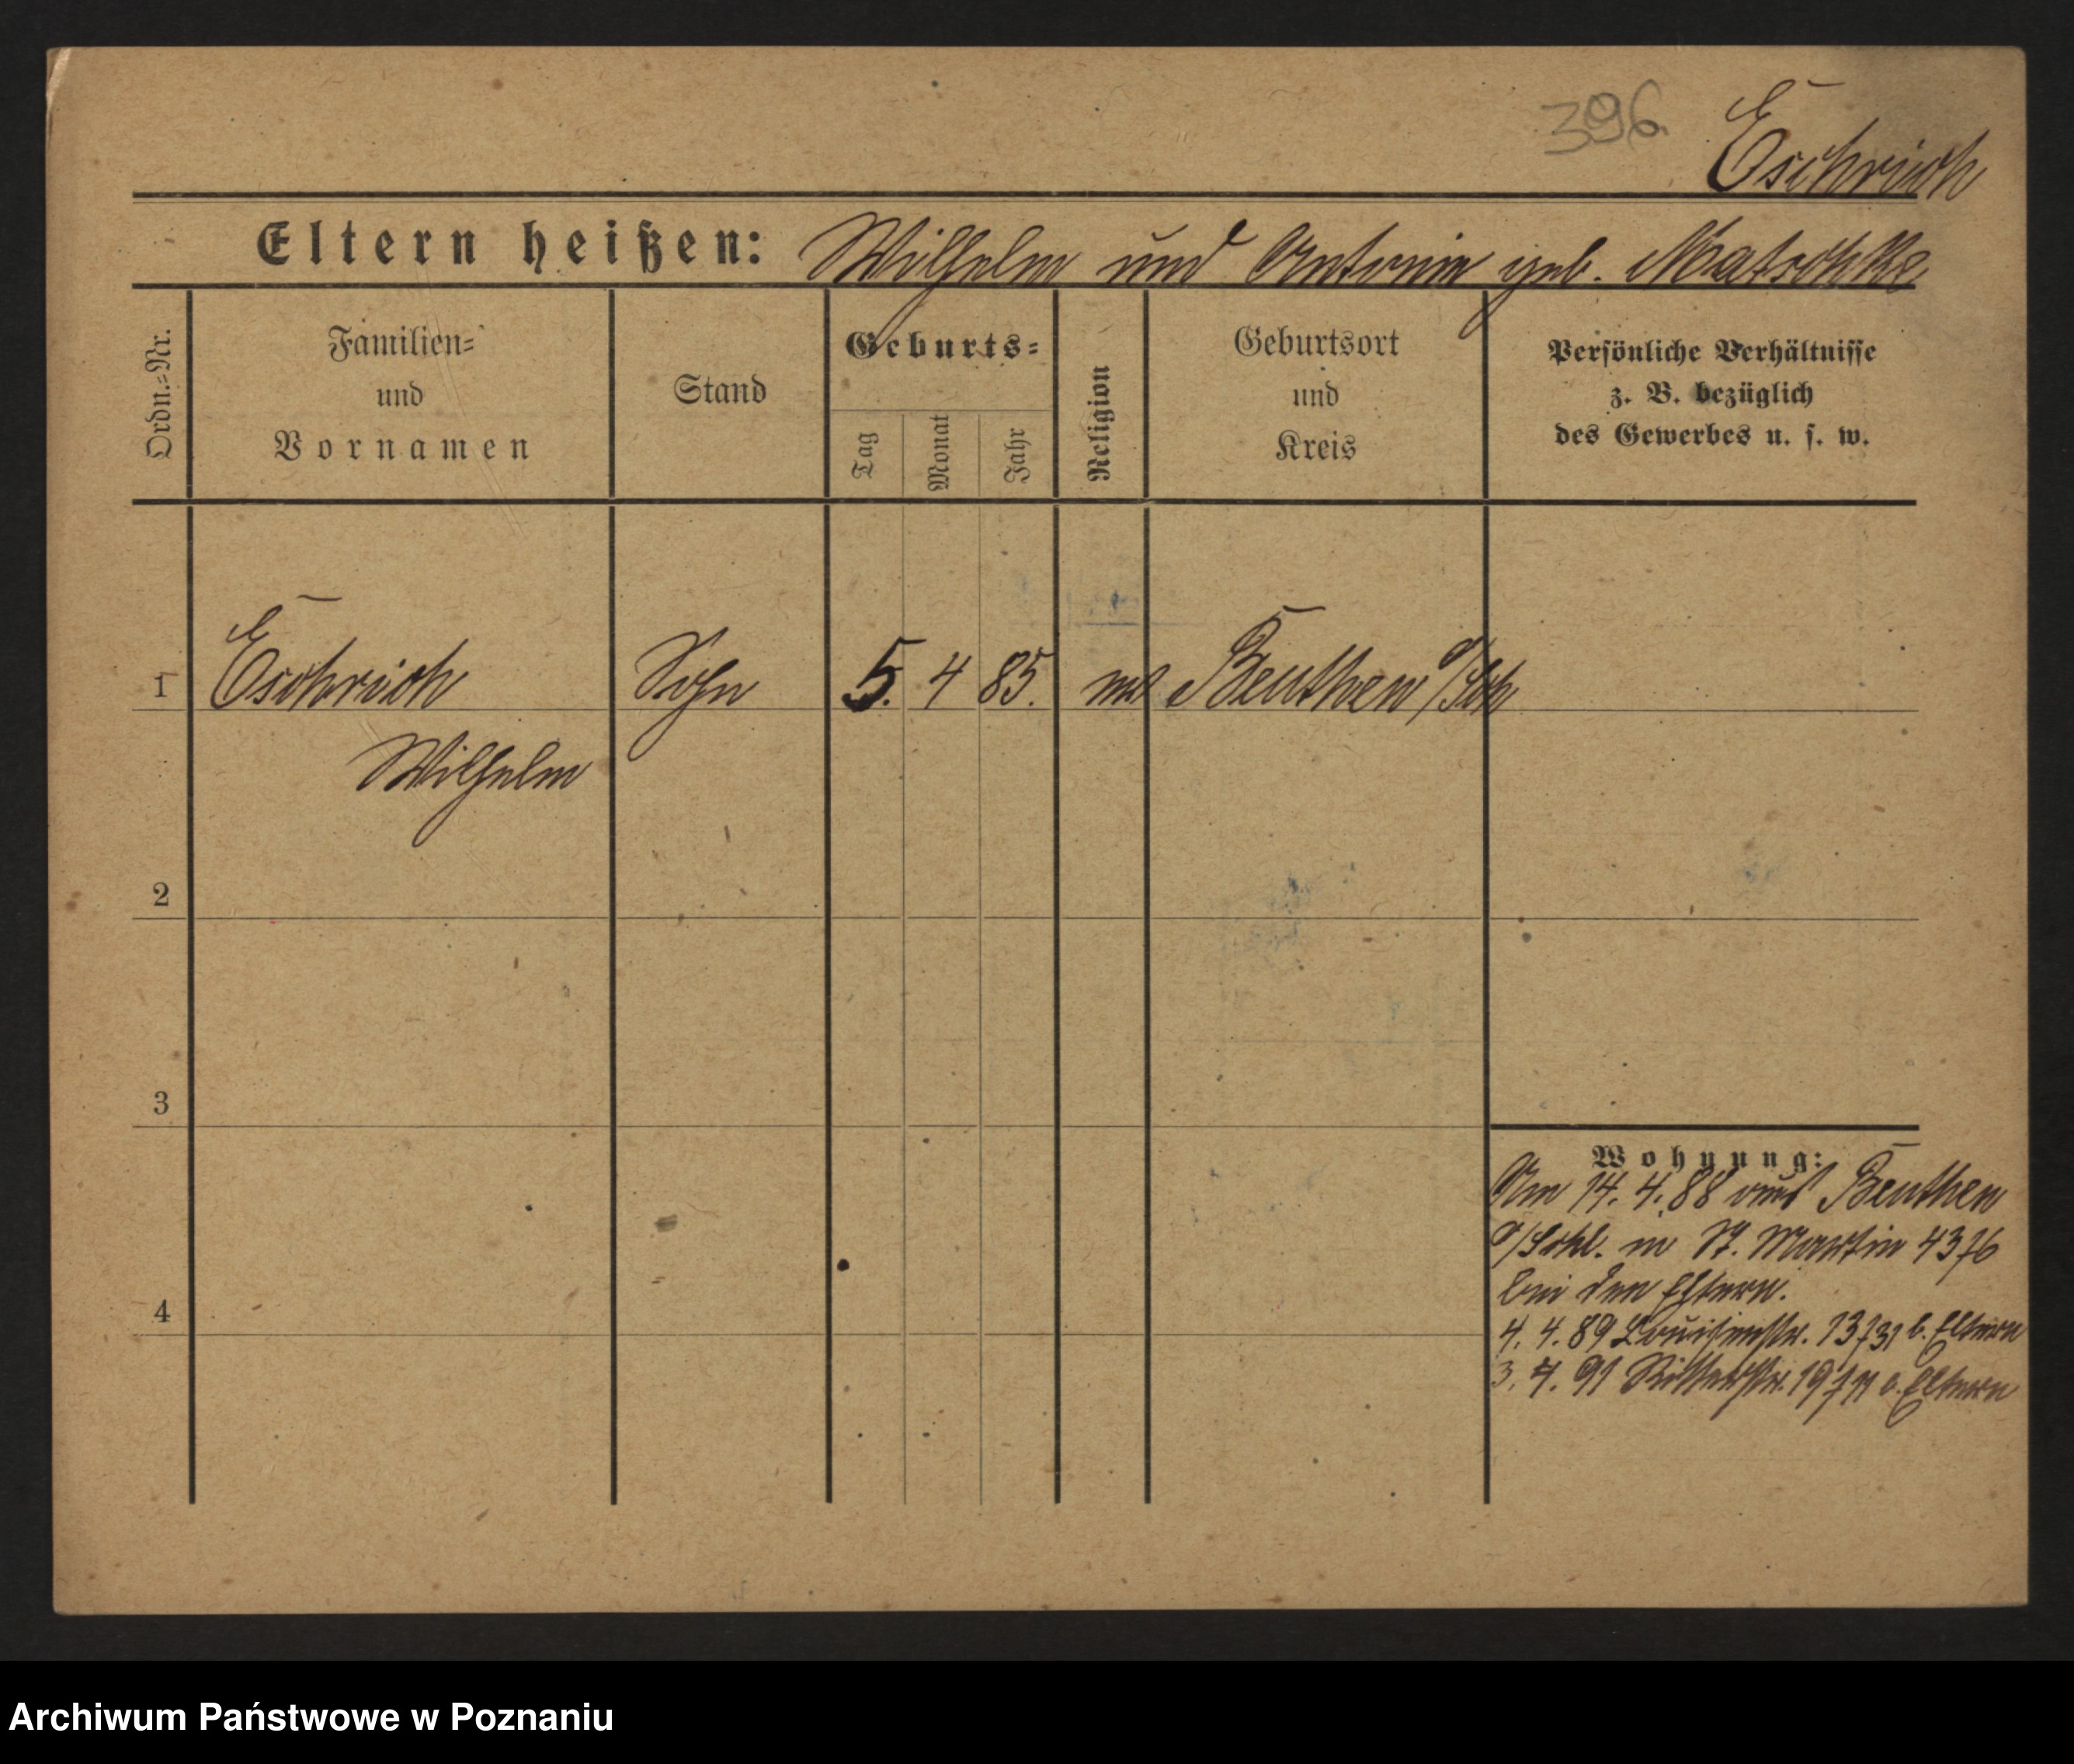 396.
Eschrich
Eltern heißen: Wilhelm und Antonie geb. Matschke
Ordn.=Nr.
Familien=
und
Vornamen
Stand
Geburts=
Tag
Monat
Jahr
Religion
Geburtsort
und
Kreis
Persönliche Verhältnisse
z. B. bezüglich
des Gewerbes u. s. w.
1 Eschrich Sohn 5. 4 85. Beuthen o/Sch
Wilhelm
2
3
4
Wohnung:
Am 14. 4. 88 aus Beuthen
o/Schl. n St. Martin 43
bei den Eltern.
4. 4. 89 Louisenstr. 13 b. Eltern
3. 4. 91 Ritterstr. 19 b. Eltern
Archiwum Państwowe w Poznaniu